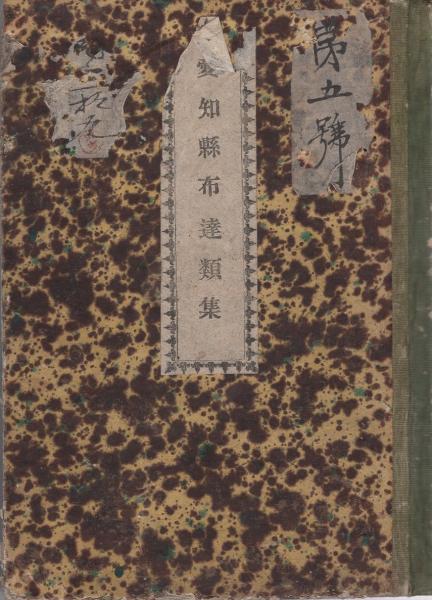 第五號
愛知縣布達類集